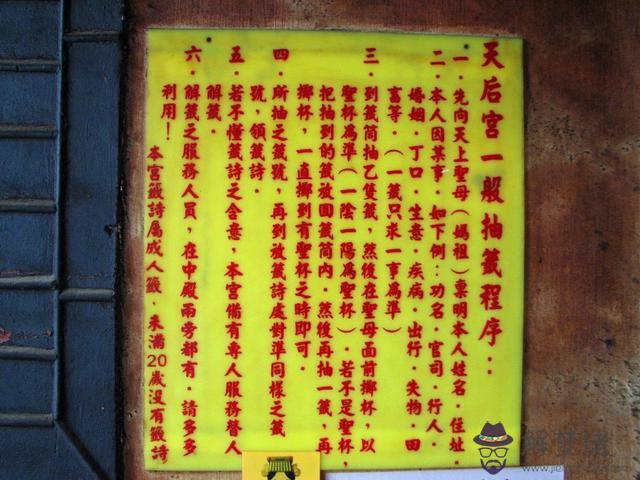 天后宮一般抽籤程序：
一．先向天上聖母（媽祖）禀明本人姓名．住址．
二．本人因某事．如下例：功名．官司．行人．
婚姻．丁口．生意．疾病．出行．失物．田
畜等．（一籤只求一事為準）
三．到籤筒抽乙隻籤，然後在聖母面前擲杯，以
聖杯為準（一陰一陽為聖杯）．若不是聖杯，
把抽到的籤放回籤筒內．然後再抽一籤，再
擲杯，一直擲到有聖杯之時即可．
四．所抽之籤號，再到放籤詩處對準同樣之籤
號，領籤詩．
五．若不懂籤詩之含意，本宮備有專人服務替人
解籤．
六．解籤之服務人員，在中殿兩旁都有．請多多
利用！
本宮籤詩屬成人籤．未滿20歲沒有籤詩